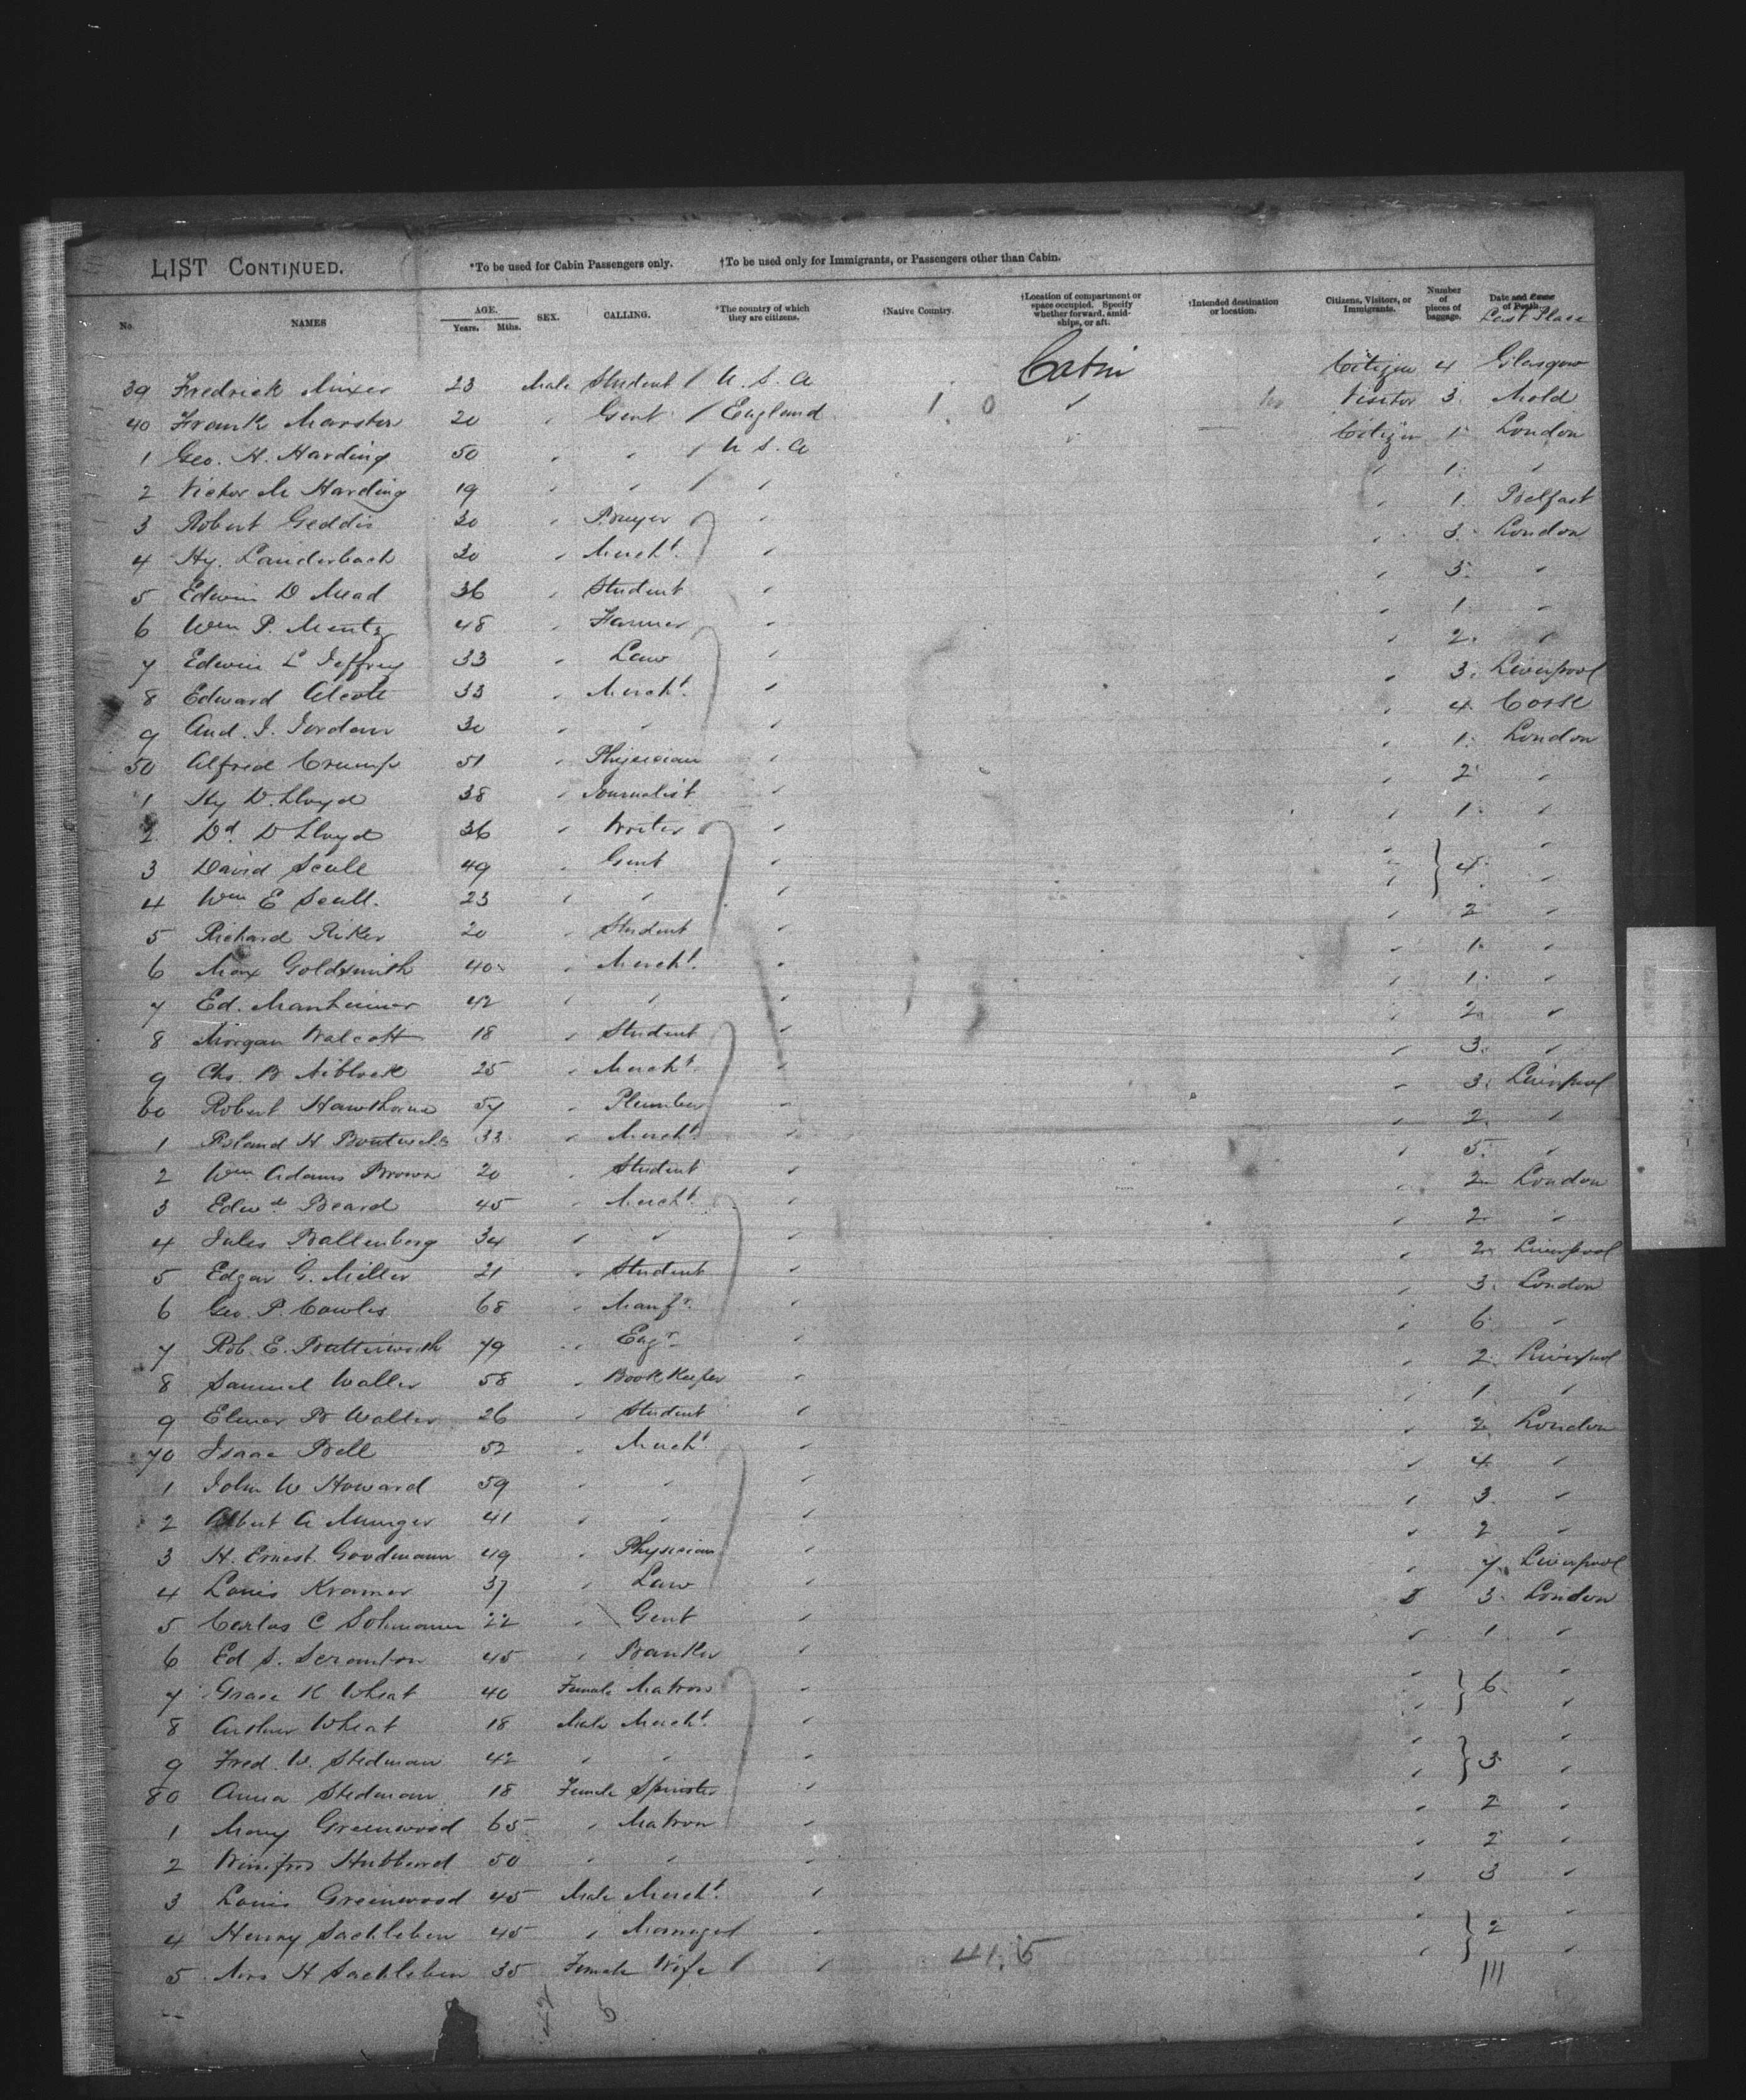 LIST CONTINUED. *To be used for Cabin Passengers only. †To be used only for Immigrants, or Passengers other than Cabin.
No. NAMES AGE. Years. Mths. SEX. CALLING. *The country of which they are citizens. †Native Country. †Location of compartment or space occupied. Specify whether forward, amidships, or aft. †Intended destination or location. Citizens, Visitors, or Immigrants. Number of pieces of baggage. Date and Cause of Death. Last Place
39 Fredrick Minxer 23 Male Student U. S. A Cabin Citizen 4 Glasgow
40 Frank Marston 20 " Gent England 1 0 " Visitor 3 Mold
1 Geo. H. Harding 50 " " U S. A Citizen 1 London
2 Victor M Harding 19 " " " " 1 "
3 Robert Geddis 30 " Buyer " " 1 Belfast
4 Hy. Lauderbach 30 " Mercht. " " 3 London
5 Edwin D Mead 36 " Student " " 3 "
6 Wm P. Mentz 48 " Farmer " " 1 "
7 Edwin L Jeffrey 33 " Law " " 2 "
8 Edward Alcott 33 " Mercht. " " 3 Liverpool
9 And. J. Jordan 30 " " " " 4 Cork
50 Alfred Crump 51 " Physician " " 1 London
1 Hy D. Lloyd 38 " Journalist " " 2 "
2 Dd. D Lloyd 36 " Writer " " 1 "
3 David Scull 49 " Gent " " } 4 "
4 Wm E Scull. 23 " " " " "
5 Richard Riker 20 " Student " " 2 "
6 Max Goldsmith 40 " Mercht. " " 1 "
7 Ed. Manheimer 42 " " " " 1 "
8 Morgan Walcott 18 " Student " " 2 "
9 Chs. B Niblock 25 " Mercht. " " 3 "
60 Robert Hawthorne 57 " Plumber " " 3 Liverpool
1 Roland H Boutwell 33 " Mercht. " " 2 "
2 Wm Adams Brown 20 " Student " " 5 "
3 Edwd. Beard 45 " Mercht. " " 2 London
4 Jules Ballenberg 34 " " " " 2 "
5 Edgar G. Miller 21 " Student " " 2 Liverpool
6 Geo. P. Cowles 68 " Manfr. " " 3 London
7 Rob. E. Butterworth 79 " Engr " " 6 "
8 Samuel Waller 58 " Book Keeper " " 2 Liverpool
9 Elmer B Waller 26 " Student " " 1 "
70 Isaac Bell 52 " Mercht " " 2 London
1 John W Howard 59 " " " " 4 "
2 Albert A Munger 41 " " " " 3 "
3 H. Ernest. Goodmann 49 " Physician " " 2 "
4 Louis Kramer 37 " Law " " 7 Liverpool
5 Carlos C Solmann 22 " Gent " 3 London
6 Ed S. Scranton 45 " Banker " " 1 "
7 Grace K Wheat 40 Female Matron " " } 6 "
8 Arthur Wheat 18 Male Mercht. " " "
9 Fred. W. Stedman 42 " " " " } 3 "
80 Anna Stedman 18 Female Spinster " " "
1 Mary Greenwood 65 " Matron " " 2 "
2 Winifred Hubbard 50 " " " " 2 "
3 Louis Greenwood 45 Male Mercht. " " 3 "
4 Henry Sachleben 45 " Manager " " } 2 "
5 Mrs H Sachleben 35 Female Wife " " "
41. 5 111
42 5